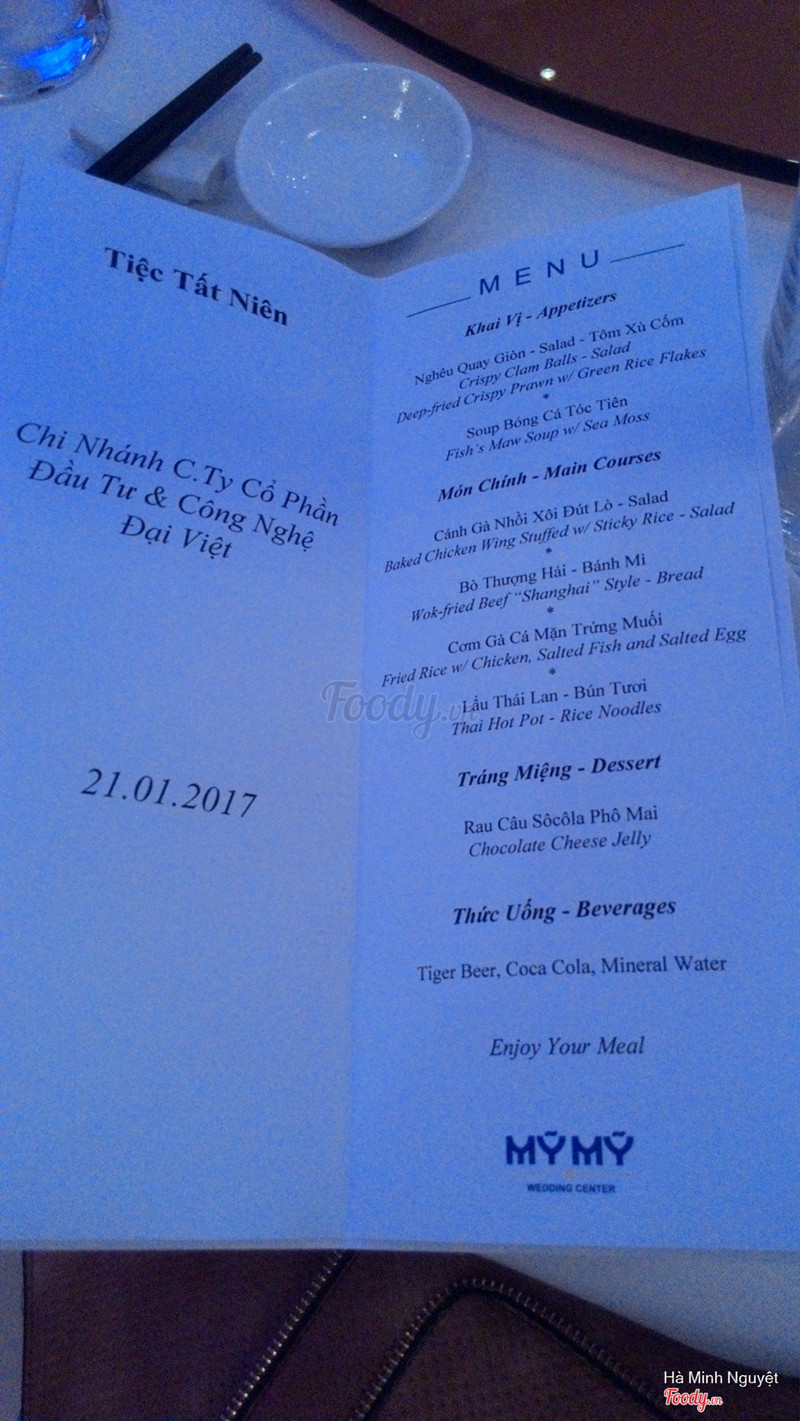 Tiệc Tất Niên
Chi Nhánh C.Ty Cổ Phần
Đầu Tư & Công Nghệ
Đại Việt
21.01.2017
MENU
Khai Vị - Appetizers
Nghêu Quay Giòn - Salad - Tôm Xù Cốm
Crispy Clam Balls - Salad
Deep-fried Crispy Prawn w/ Green Rice Flakes
*
Soup Bóng Cá Tóc Tiên
Fish's Maw Soup w/ Sea Moss
Món Chính - Main Courses
Cánh Gà Nhồi Xôi Đút Lò - Salad
Baked Chicken Wing Stuffed w/ Sticky Rice - Salad
*
Bò Thượng Hải - Bánh Mì
Wok-fried Beef “Shanghai” Style - Bread
*
Cơm Gà Cá Mặn Trứng Muối
Fried Rice w/ Chicken, Salted Fish and Salted Egg
*
Lẩu Thái Lan - Bún Tươi
Thai Hot Pot - Rice Noodles
Tráng Miệng - Dessert
Rau Câu Sôcôla Phô Mai
Chocolate Cheese Jelly
Thức Uống - Beverages
Tiger Beer, Coca Cola, Mineral Water
Enjoy Your Meal
MỸ MỸ
WEDDING CENTER
Foody.vn
Hà Minh Nguyệt
Foody.vn